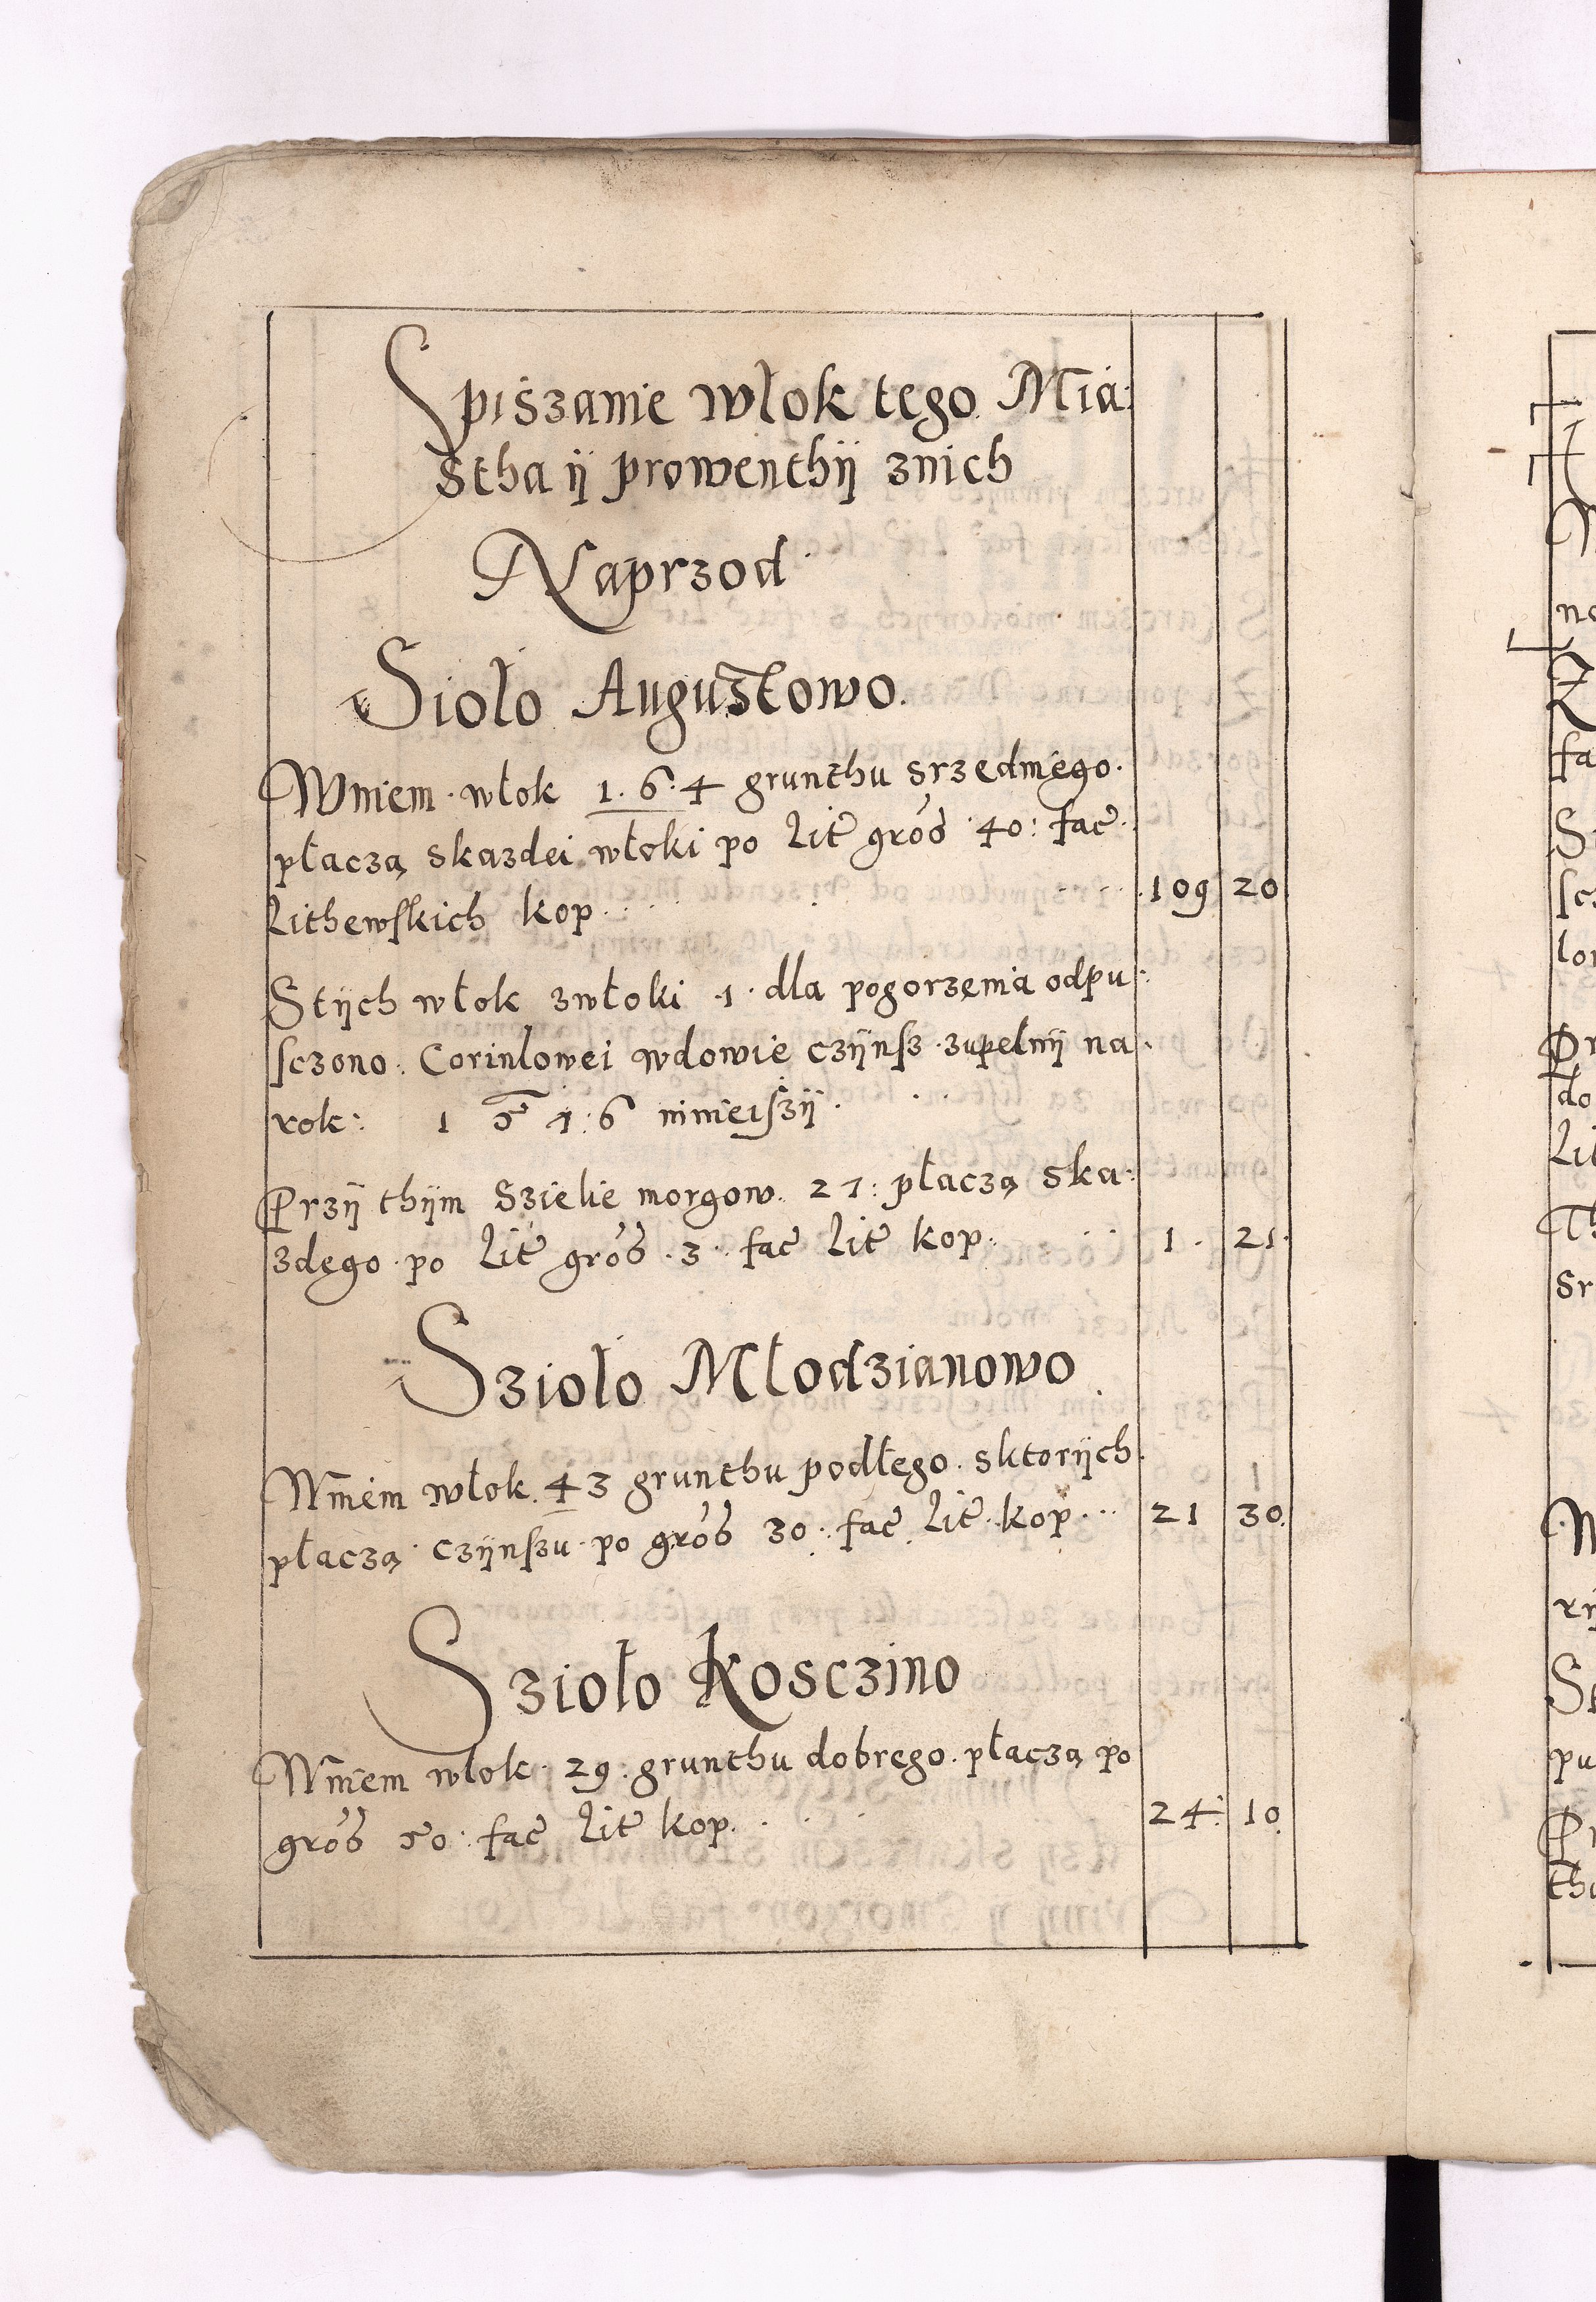 Spiszanie włok tego Mia:
stha ÿ prowenthÿ znich
Naprzod
Sioło Augustowo.
Wniem włok 1.6.4 grunthu srzedniego.
płaczą skazdei włoki po Lit gros 40: fac
Lithewskich kop 109 20
Stÿch włok zwłoki 1 dla pogorzenia odpu:
sczono. Corinlowei wdowie czÿnsz zupelnÿ na
rok: 1 5 1.6 ninieiszÿ
Przÿ thÿm Szielie morgow 27: płaczą ska:
zdego po Lit gros 3 fac Lit kop 1 21
Szioło Młodzianowo
Wniem włok 43 grunthu podłego sktorÿch
płaczą czÿnszu po gros 30 fac Lit kop 21 30
Szioło Kosczino
Wniem włok 29 grunthu dobrego płaczą po
gros 50: fac Lit kop 24 10